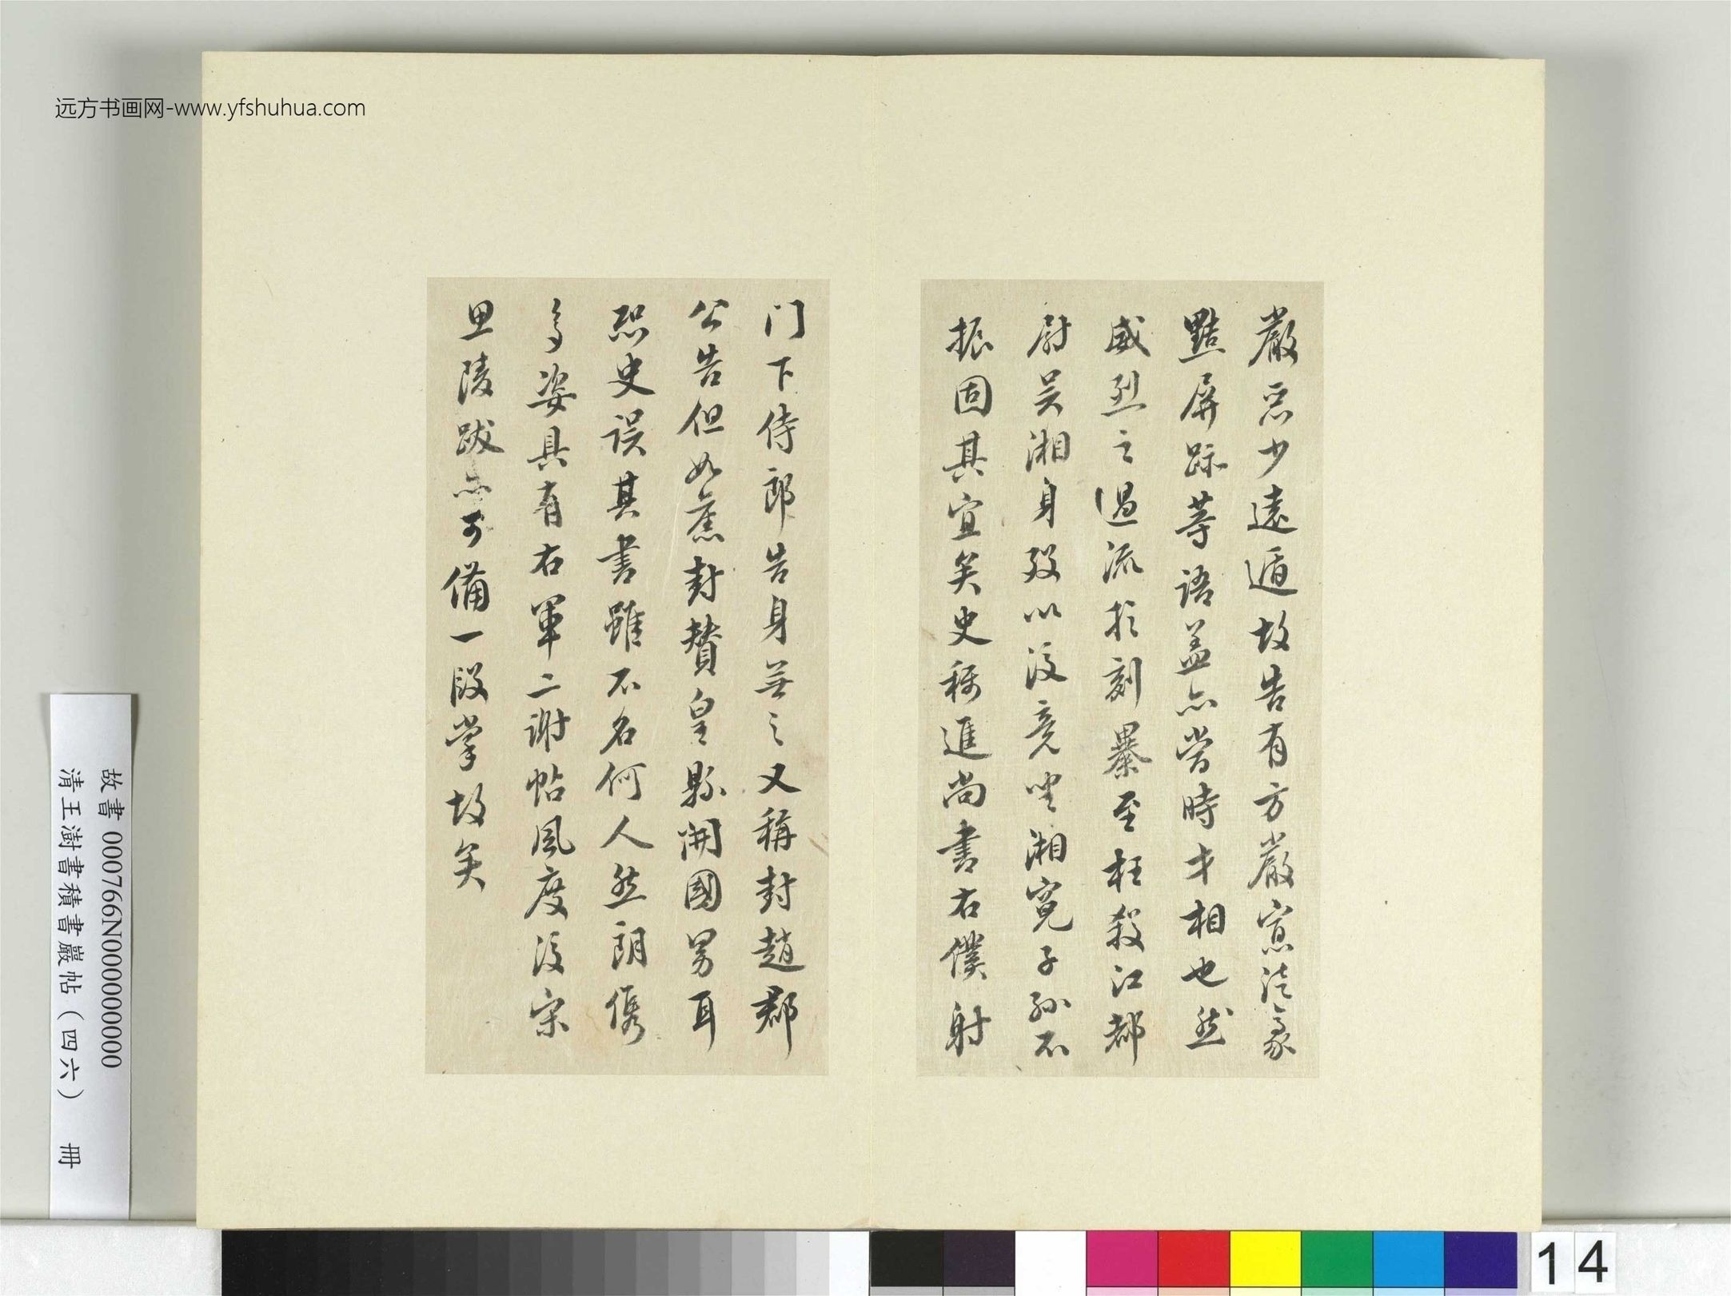 嚴惡少遠遁故告有方嚴憲法豪
黠屏跡等語蓋亦當時才相也然
威烈之過流於刻暴至枉殺江都
尉吴湘身歿以後竟坐湘冤子孫不
振固其宜矣史稱進尚書右僕射
门下侍郎告身無之又稱封趙郡
公告但如舊封贊皇縣開國男耳
恐史误其書雖不名何人然朗儁
多姿具有右軍二謝帖風度後宋
思陵跋亦可備一段掌故矣
远方书画网-www.yfshuhua.com
故書 000766N000000000
清王澍書積書巖帖（四六） 冊
14